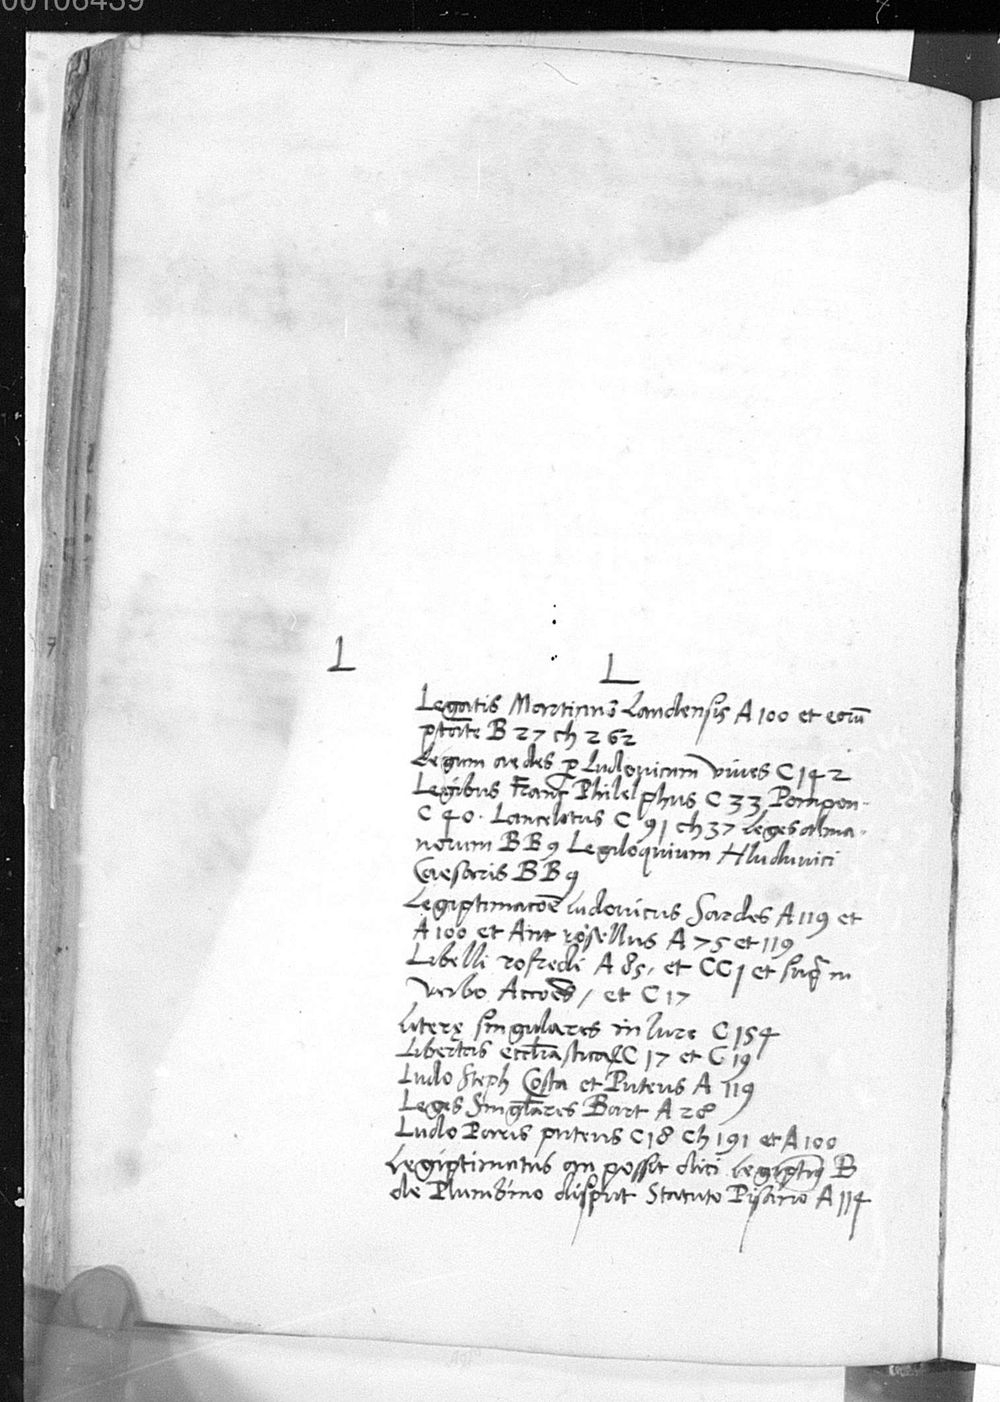 00106439
L
L
Legatis Martinus Laudensis A 100 et eorū
ptāte B 27 ch 262
Legum aedes p Ludovicum vives C 142
Legibus Franc Philelphus C 33 Pompon-
C 40. Lancelotus C 91 ch 37 leges alma-
norum BB 9 Legiloquium Hluduvici
Caesaris BB 9
Legiptimatōe Ludovicus Sardes A 119 et
A 100 et Ant rosellus A 75 et 119
Libelli rofredi A 85, et CC 1 et supra in
verbo Actoēs / et C 17
Literę singulares in Iure C 154
Libertas ecclīastica C 17 et C 19
Ludo Steph Costa et Puteus A 119
Leges Singlares Bart A 28
Ludo Paris puteus C 18 Ch 191 et A 100
Legiptimatus an possit dici legiptius B
de Plumbino disput Statuto Pisano A 114